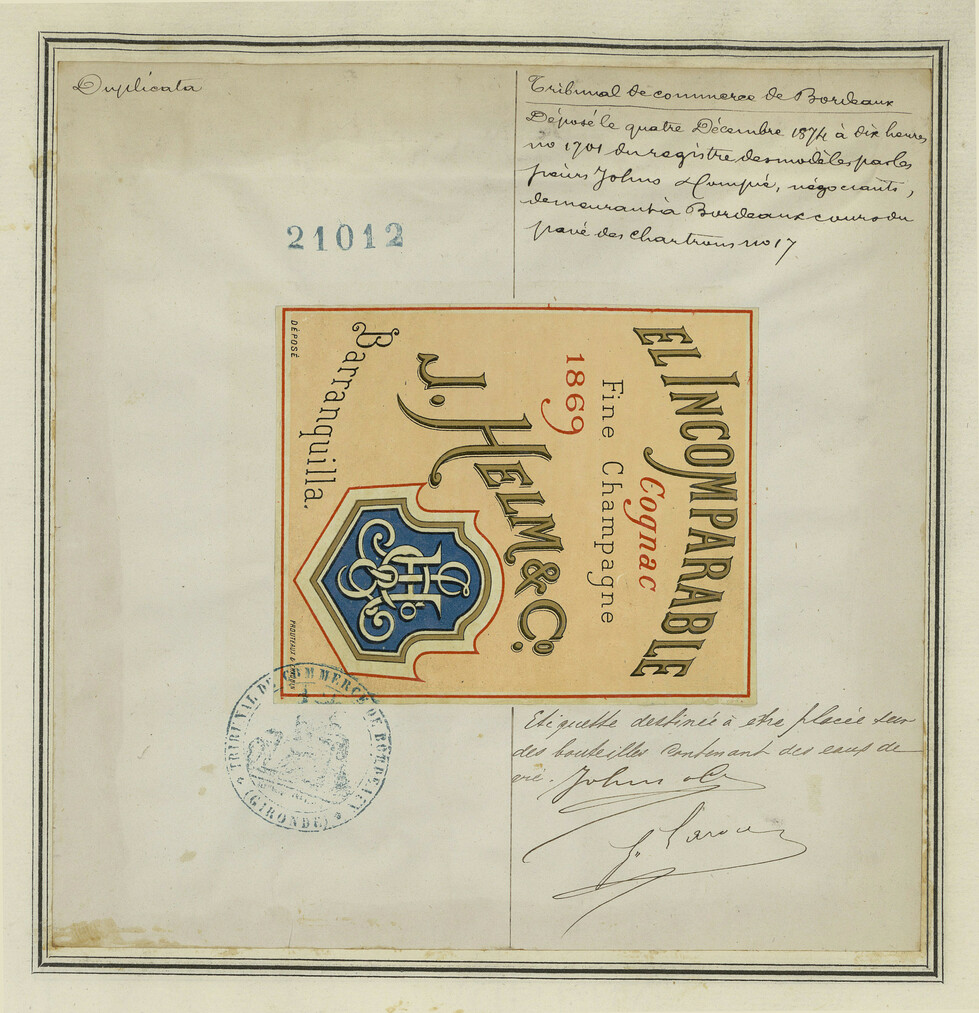 Duplicata
Tribunal de commerce de Bordeaux
Déposé le quatre Décembre 1874 à dix heures
no 1701 du registre des modèles par les
sieurs Johns & Compie, négociants,
demeurant à Bordeaux cours du
pavé des chartrons no 17
21012
EL INCOMPARABLE
Cognac
Fine Champagne
1869
J. HELM & Co.
Barranquilla.
DÉPOSÉ
TRIBUNAL DE COMMERCE DE BORDEAUX
(GIRONDE)
Etiquette destinée à etre placée sur
des bouteilles contenant des eaux de
vie. Johns & Co